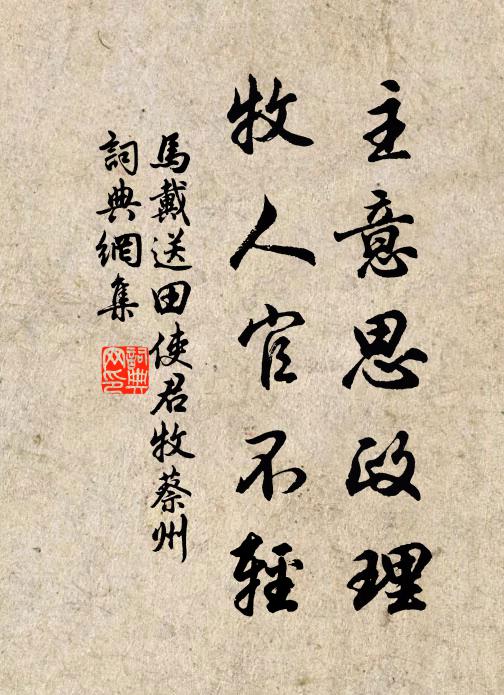 主意思政理
牧人官不輕
馬戴送田使君牧蔡州
詞典網集
詞典網印